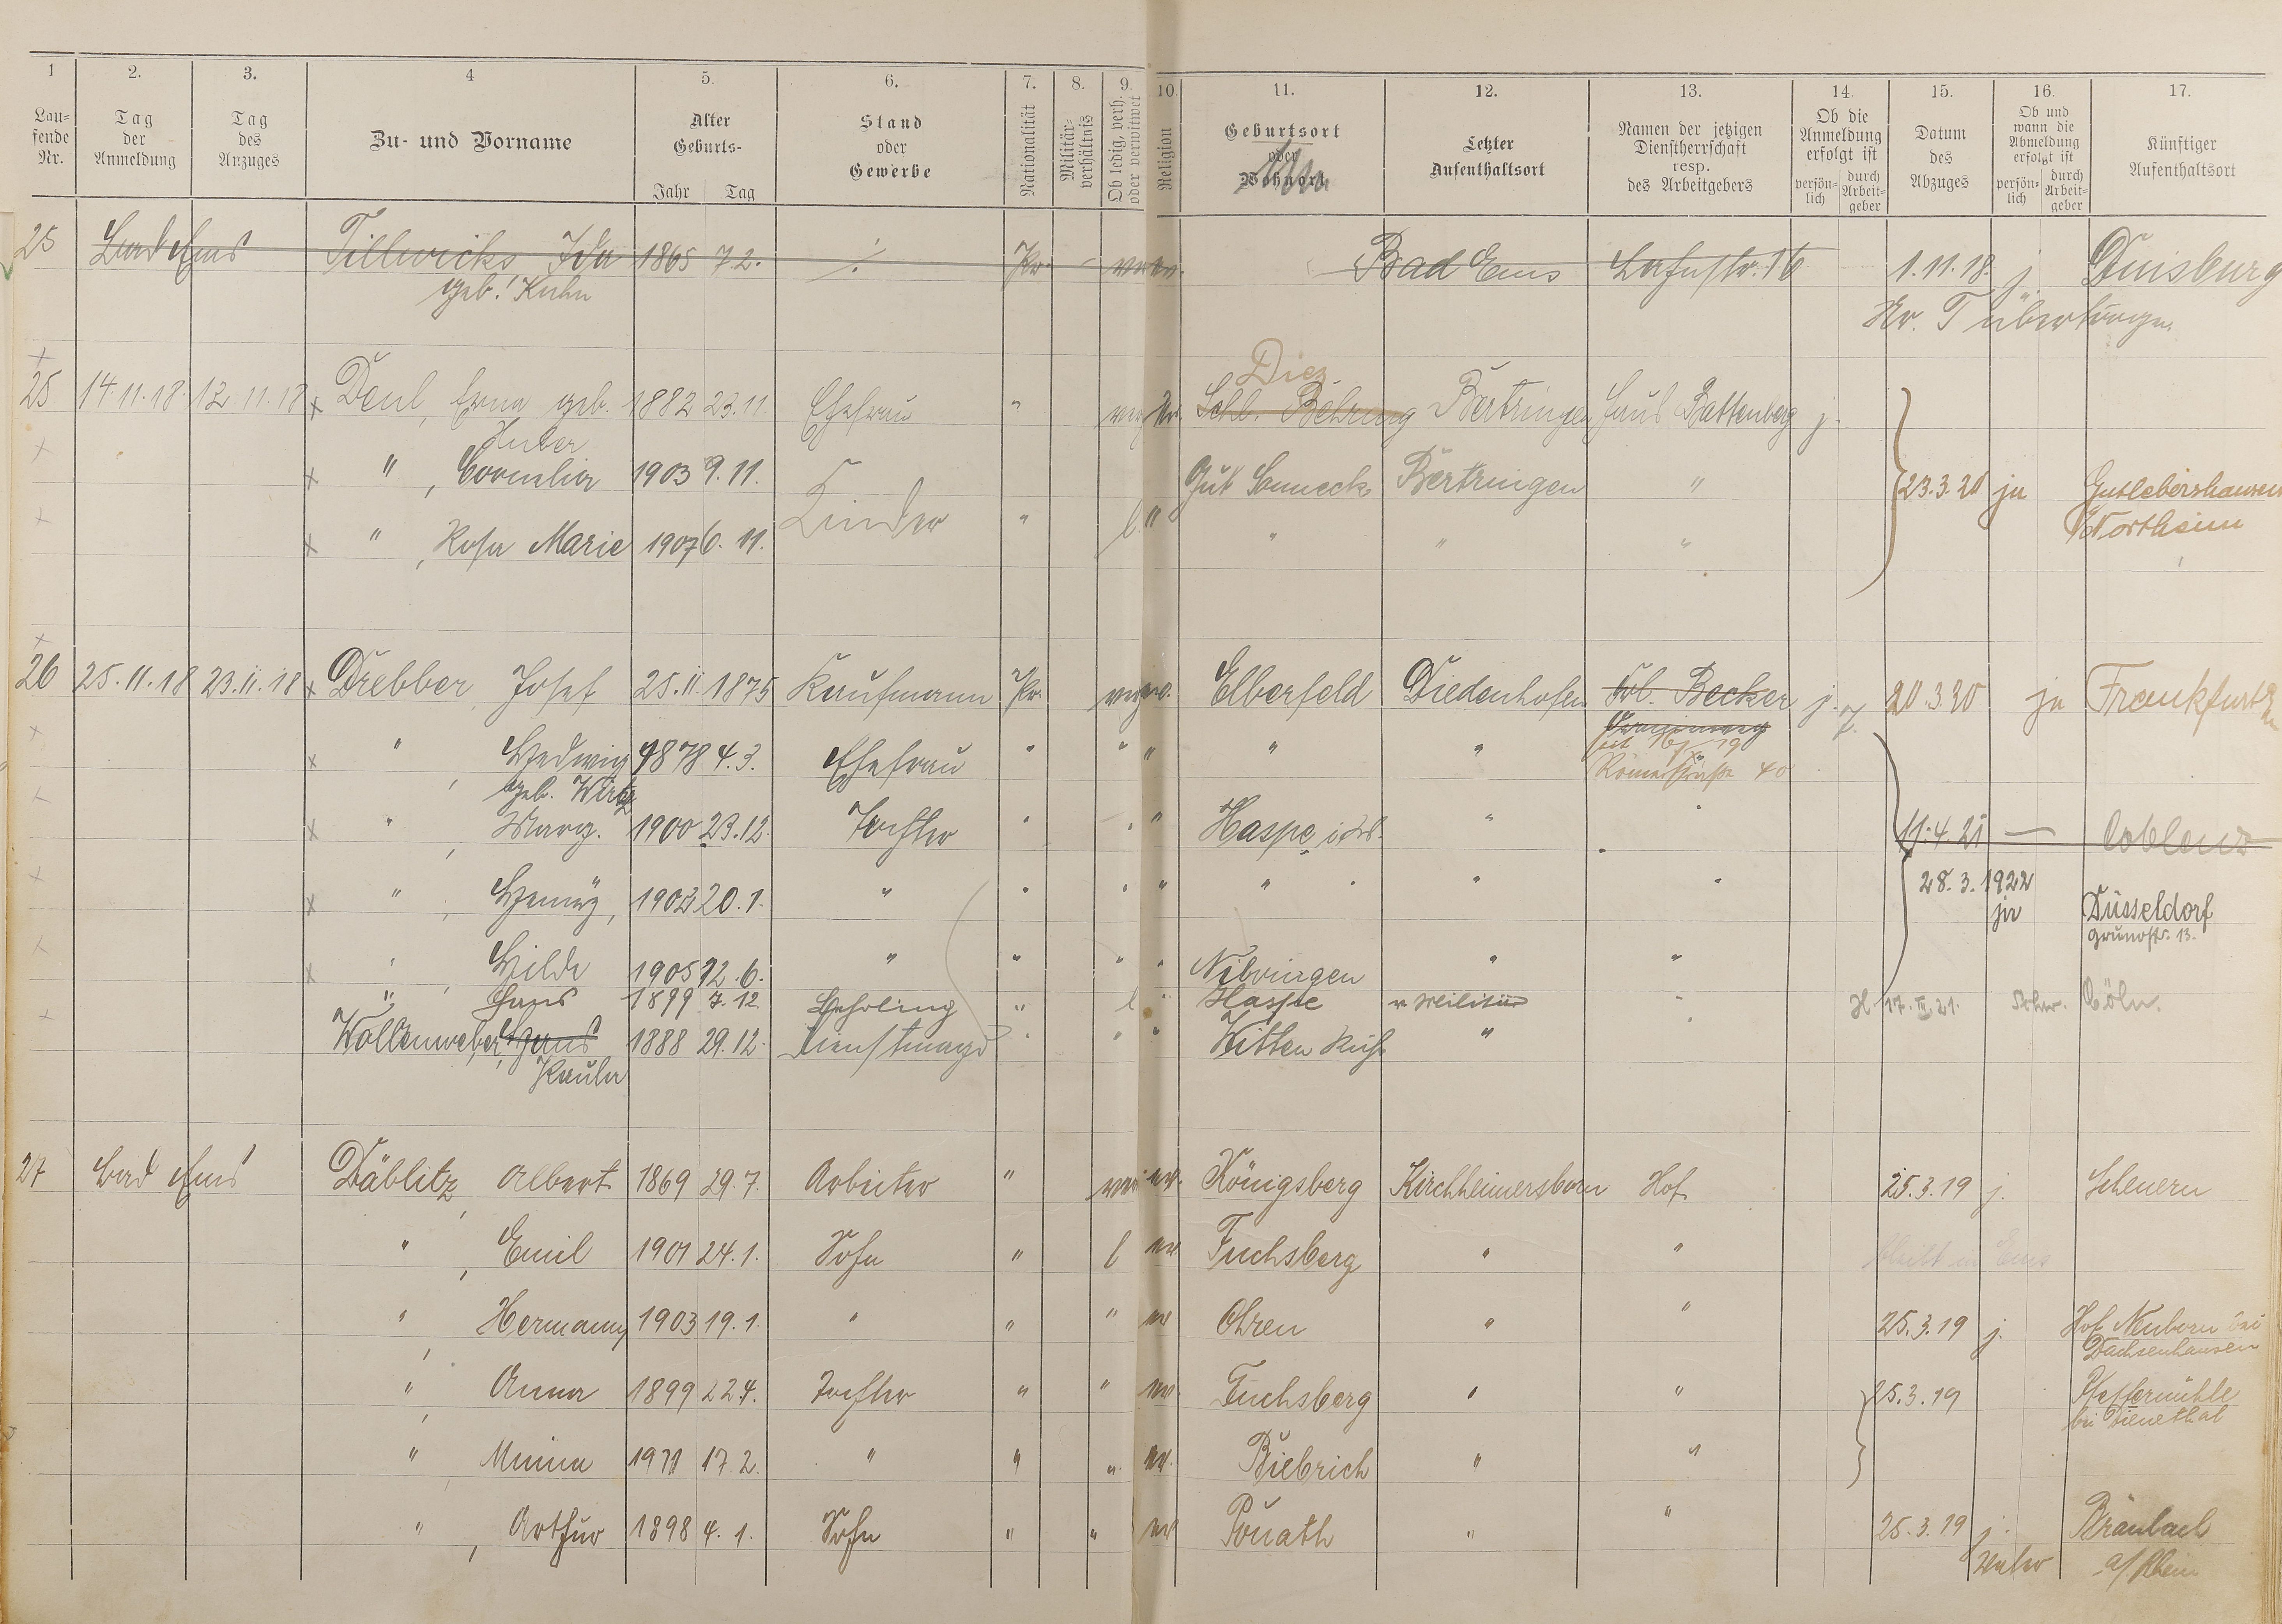 1 2. 3. 4 5. 6. 7. 8. 9. 10. 11. 12. 13. 14. 15. 16. 17.
Lau-
fende
Nr.
Tag
der
Anmeldung
Tag
des
Anzuges
Zu- und Vorname
Alter
Geburts-
Jahr Tag
Stand
oder
Gewerbe
Nationalität
Militär-
verhältnis
Ob ledig, verh.
oder verwitwet
Religion
Geburtsort
oder
Wohnort
Letzter
Aufenthaltsort
Namen der jetzigen
Dienstherrschaft
resp.
des Arbeitgebers
Ob die
Anmeldung
erfolgt ist
persön-
lich
durch
Arbeit-
geber
Datum
des
Abzuges
Ob und
wann die
Abmeldung
erfolgt ist
persön-
lich
durch
Arbeit-
geber
Künftiger
Aufenthaltsort
25 Bad Ems Tillwicks Ida 1865 7.2. ./. Pr. Bad Ems 16 1.11.18 j. Duisburg
geb. Kuhn
Nr. T übertragen.
Diez
25 14.11.18. 12.11.18 Deul, Erna geb. 1882 23.11. Ehefrau " Schl. Behring Bertringen Haus Battenberg j.
Huber
" , Cornelia 1903 9.11. Kinder " l. " Gut Sonneck Bertringen " 23.3.20 ja
" , Rosa Marie 1907 6.11. " " " Northeim
26 25.11.18 23.11.18 Drebber, Josef 25.11.1875 Kaufmann Pr. Elberfeld Diedenhofen Frl. Becker j. 20.3.20 ja Frankfurt
" , Hedwig 1878 4.3. Ehefrau " " " " "
geb. Wirtz
Römerstraße 40
" , Marg. 1900 23.12. Tochter " " " Haspe i/W. " 11.4.21 — Coblenz
" , Henny, 1903 20.1. " " " " " " " 28.3.1922
ja Düsseldorf
Grunostr. 13.
" , Hilde 1905 12.6. " " " " Nilvingen " "
" , Hans 1899 7.12. Lehrling " l " Haspe v. Militär " 17.III.21. Cöln.
Wollenweber, Hans 1888 29.12. Dienstmagd " " " Witten Ruhr "
Paula
27 Bad Ems Däblitz, Albert 1869 29.7. Arbeiter " Königsberg Kirchheimersborn Hof 25.3.19 j. Scheuern
" , Emil 1901 24.1. Sohn " l Fuchsberg " " bleibt in Ems
" , Hermann 1903 19.1. " " " Ohren " " 25.3.19 j. Hof Neuborn bei
Dachsenhausen
" , Anna 1899 22.4. Tochter " " Fuchsberg " " 25.3.19 Pfeffermühle
bei Dienethal
" , Minna 1911 17.2. " " " Biebrich " "
" , Arthur 1898 4.1. Sohn " " Ponath " " 25.3.19 j. Braubach
a/Rhein